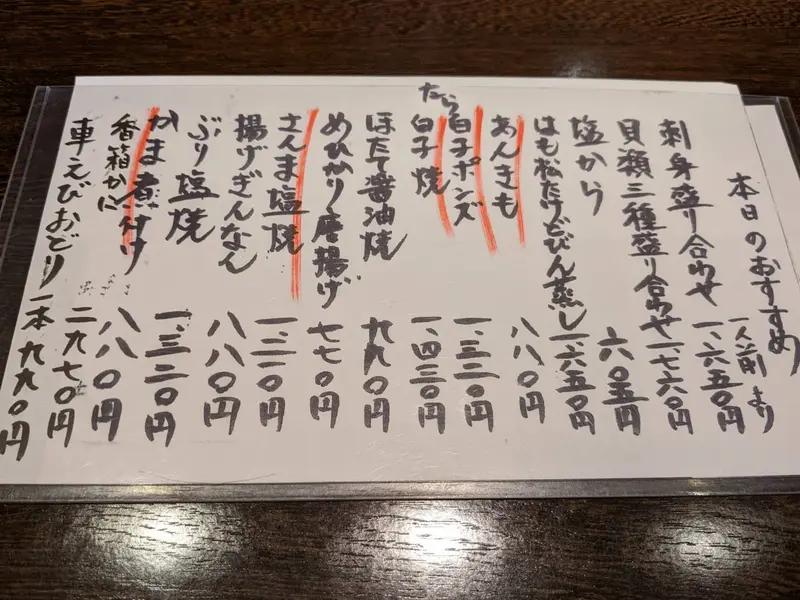 本日のおすすめ
刺身盛り合わせ 一人前 一、六五〇円 より
貝類三種盛り合わせ 一、七六〇円
塩から 六〇五円
はも松たけどびん蒸し 一、六五〇円
あんきも 八八〇円
白子ポンズ 一、三二〇円
たら白子焼 一、四三〇円
ほたて醤油焼 九九〇円
めひかり唐揚げ 七七〇円
さんま塩焼 一、二一〇円
揚げぎんなん 八八〇円
ぶり塩焼 一、三二〇円
かま煮付け 八八〇円
香箱かに 二九七〇円
車えびおどり一本 九九〇円